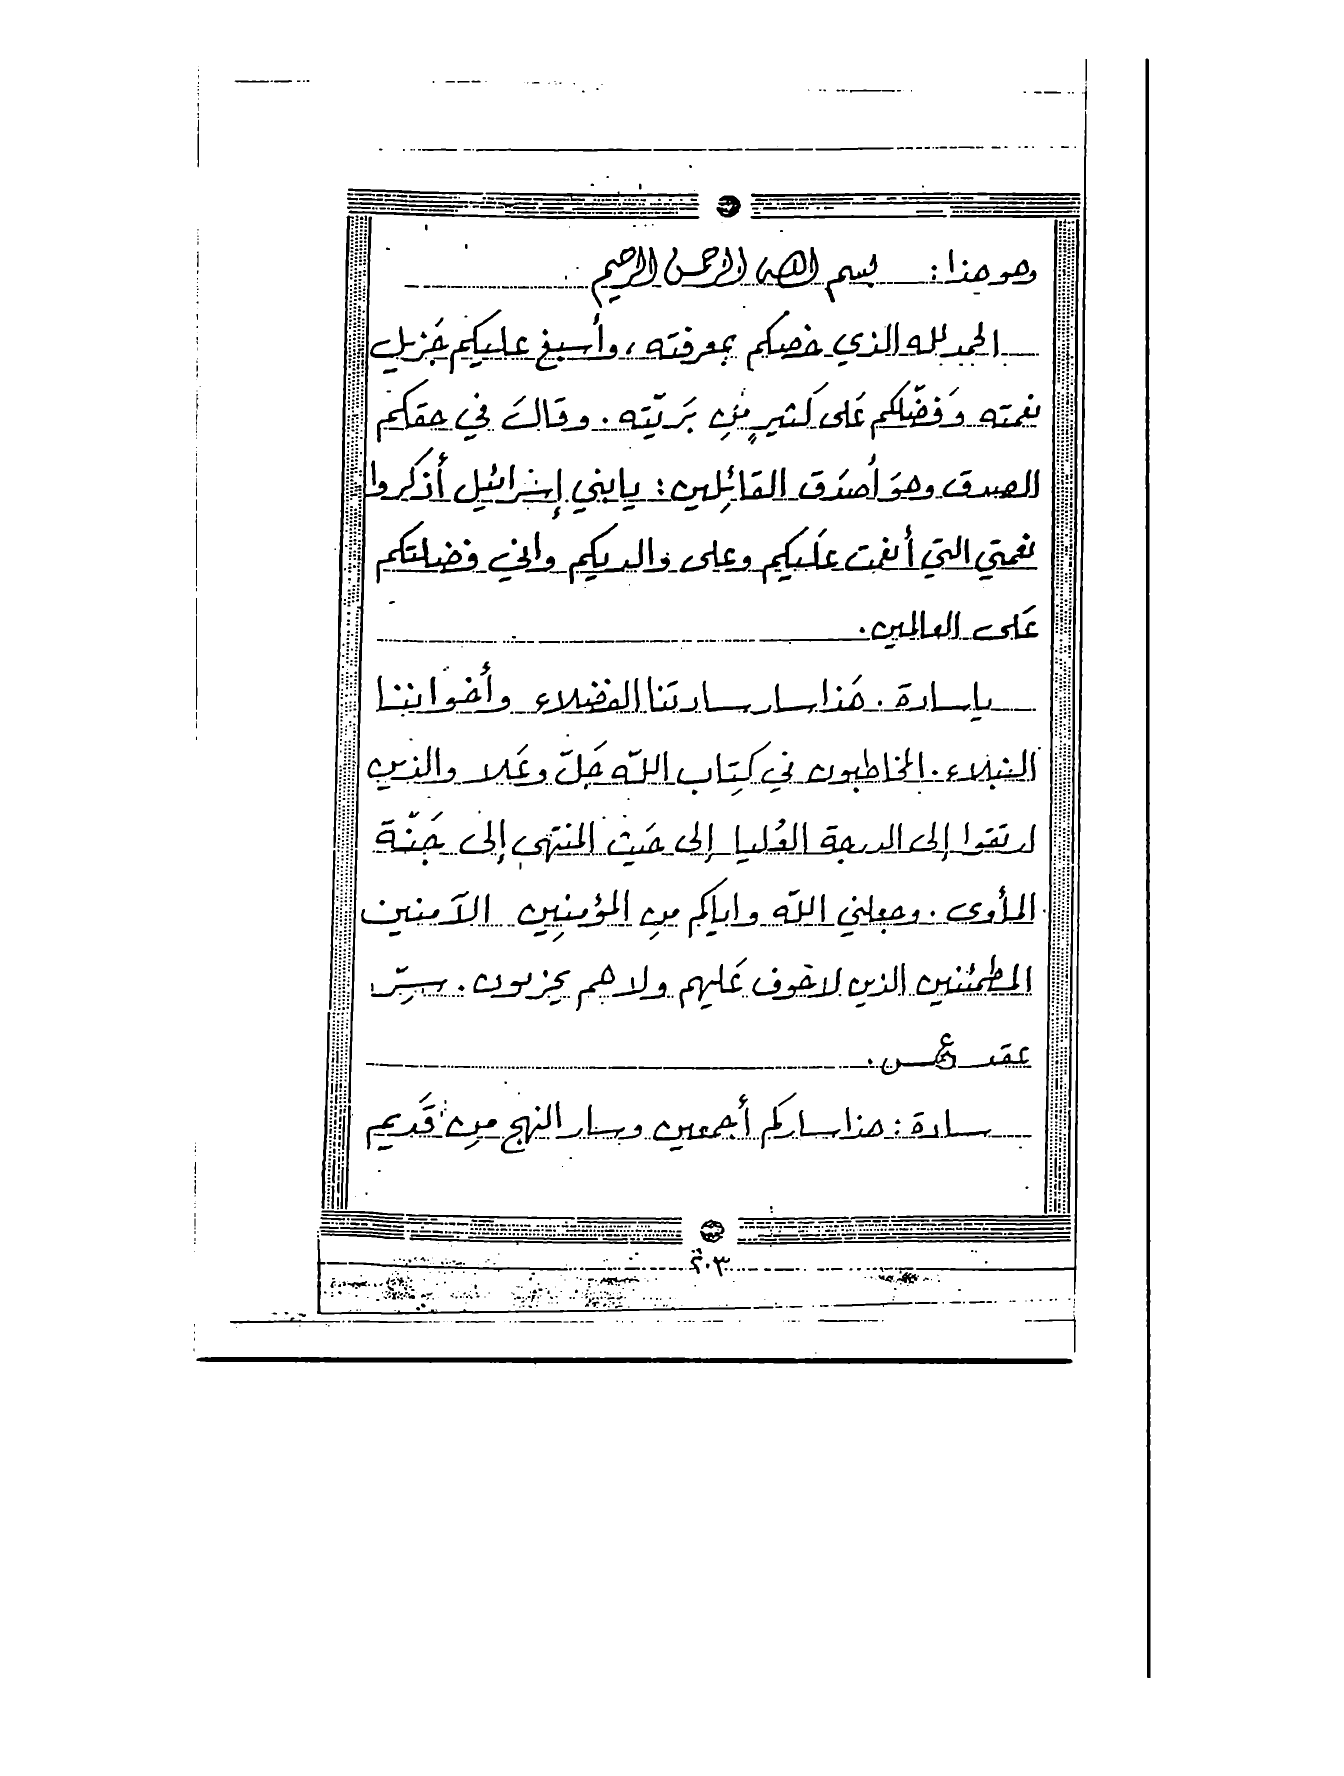 وهو هذا: بسم الله الرحمن الرحيم
الحمد لله الذي خصكم بمعرفته، وأسبغ عليكم جَزيل
نعمته وَفَضّلكم عَلى كَثيرٍ مِن بَريّته. وقالَ في حقكم
الصدق وهوَ أصدَق القائِلين: يا بني إسْرائيل أذكروا
نعمتي التي أنعمت عَليكم وعلى والديكم واني فضلتكم
عَلى العالمين.
يا سادة. هَذا سار سادتنا الفضلاء وأخواننا
النبلاء. المخاطبون في كِتاب اللّه جَلّ وعَلا والذين
ارتقوا إلى الدرجة العُليا إلى حَيث المنتهى إلى جَنّة
المأوى. وجعلني اللّه واياكم مِن المؤمنِين الآمنين
المطمئنين الذين لا خوف عَليهم ولا هم يحزنون. سِرّ
عقد ع م س.
سادة: هذا ساركم أجمعين وسار النهج مِن قَديم
٢٠٣